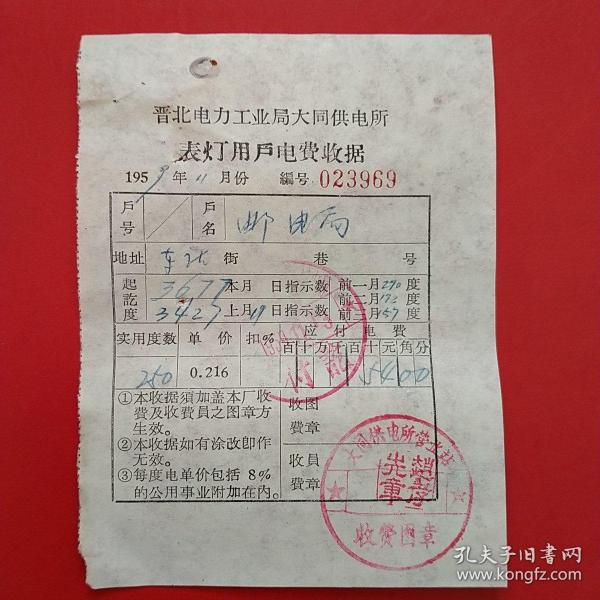 晋北电力工业局大同供电所
表灯用戶电費收据
1959年11月份 編号 023969
戶号 戶名 邮电局
地址 车站 街 巷 号
起訖度 3677 本月 日指示数 前一月290度
前二月172度
3427 上月19日指示数 前三月157度
实用度数 单价 扣% 应付电費
百十万千百十元角分
250 0.216 5400
①本收据須加盖本厂收
費及收費員之图章方
生效。
②本收据如有涂改即作
无效。
③每度电单价包括8%
的公用事业附加在內。
收图
費章
收員
費章
付訖
大同供电所营业站
收费图章
孔夫子旧书网
www.kongfz.com